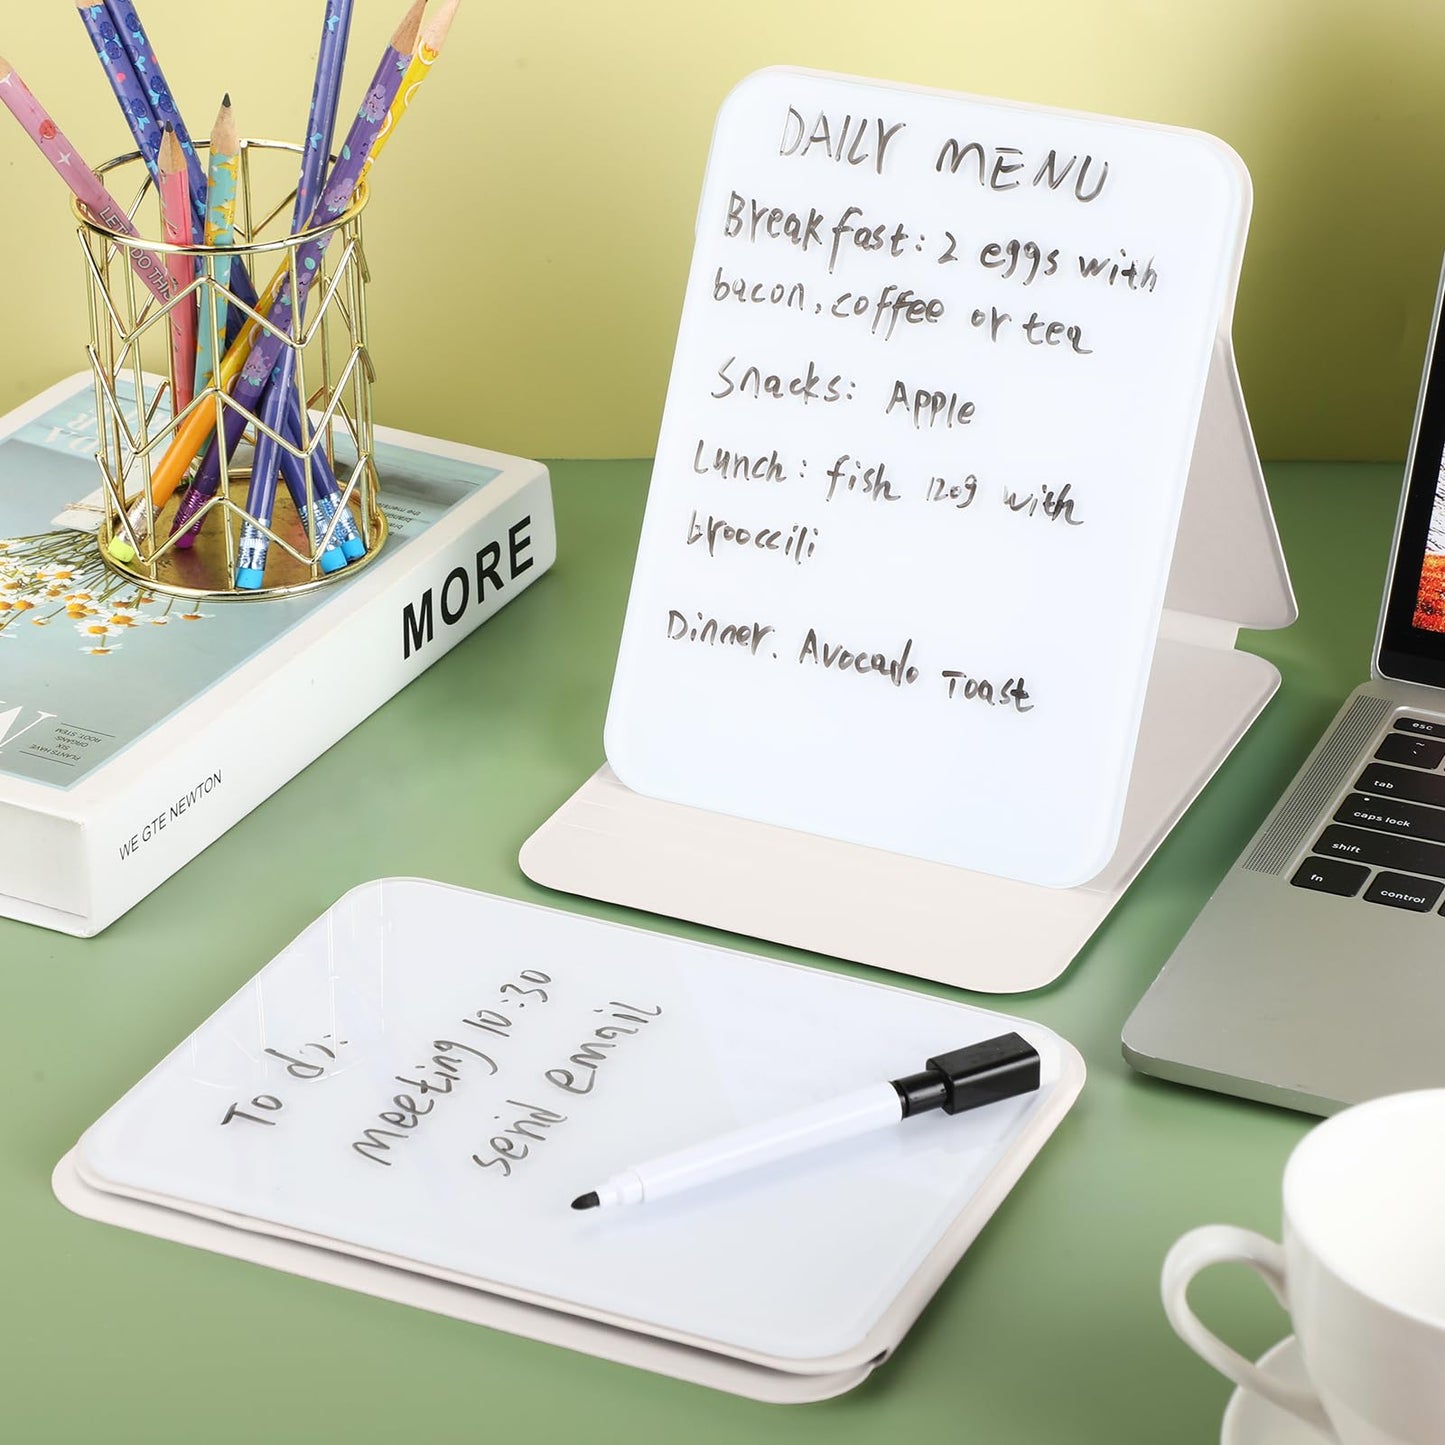 DAILY MENU
Breakfast: 2 eggs with
bacon, coffee or tea
Snacks: Apple
Lunch: fish 120g with
brooccili
Dinner. Avocado Toast
To do:
meeting 10:30
send email
MORE
WE GTE NEWTON
LET'S DO THIS
PLANTS HAVE
SIX
ORGANS:
ROOT, STEM
esc
~
tab
caps lock
shift
fn
control